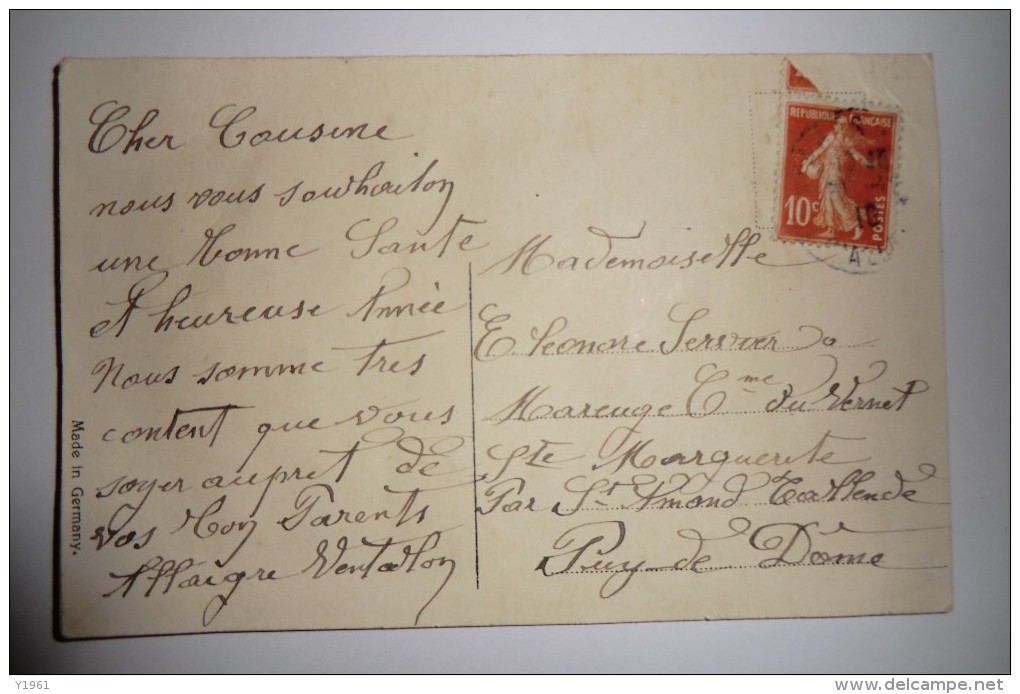 Cher Cousine
nous vous souhaiton
une bonne Sante
et heureuse Année
Nous somme tres
content que vous
soyer aupret de
vos bon Parents
Allaigre Ventallon
Made in Germany.
REPUBLIQUE FRANÇAISE
10c
POSTES
Mademoiselle
Eleonore Servier à
Mareuge Cme du Vernet
Ste Marguerite
Par St Amond Tallende
Puy de Dôme
Y1961
delcampe.net